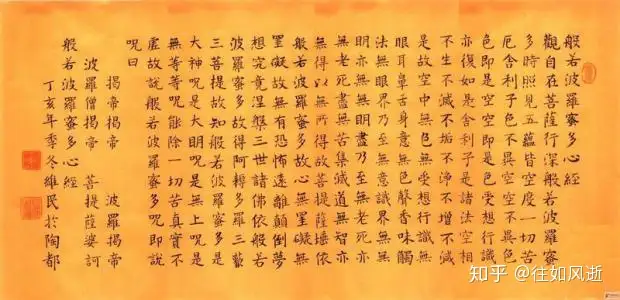 般若波羅蜜多心經
觀自在菩薩行深般若波羅蜜
多時照見五蘊皆空度一切苦
厄舍利子色不異空空不異色
色即是空空即是色受想行識
亦復如是舍利子是諸法空相
不生不滅不垢不淨不增不減
是故空中無色無受想行識無
眼耳鼻舌身意無色聲香味觸
法無眼界乃至無意識界無無
明亦無無明盡乃至無老死亦
無老死盡無苦集滅道無智亦
無得以無所得故菩提薩埵依
般若波羅蜜多故心無罣礙無
罣礙故無有恐怖遠離顛倒夢
想究竟涅槃三世諸佛依般若
波羅蜜多故得阿耨多羅三藐
三菩提故知般若波羅蜜多是
大神呪是大明呪是無上呪是
無等等呪能除一切苦真實不
虛故說般若波羅蜜多呪即說
呪曰
揭帝揭帝 波羅揭帝
波羅僧揭帝 菩提薩婆訶
般若波羅蜜多心經
丁亥年季冬維民於陶都
知乎 @往如风逝